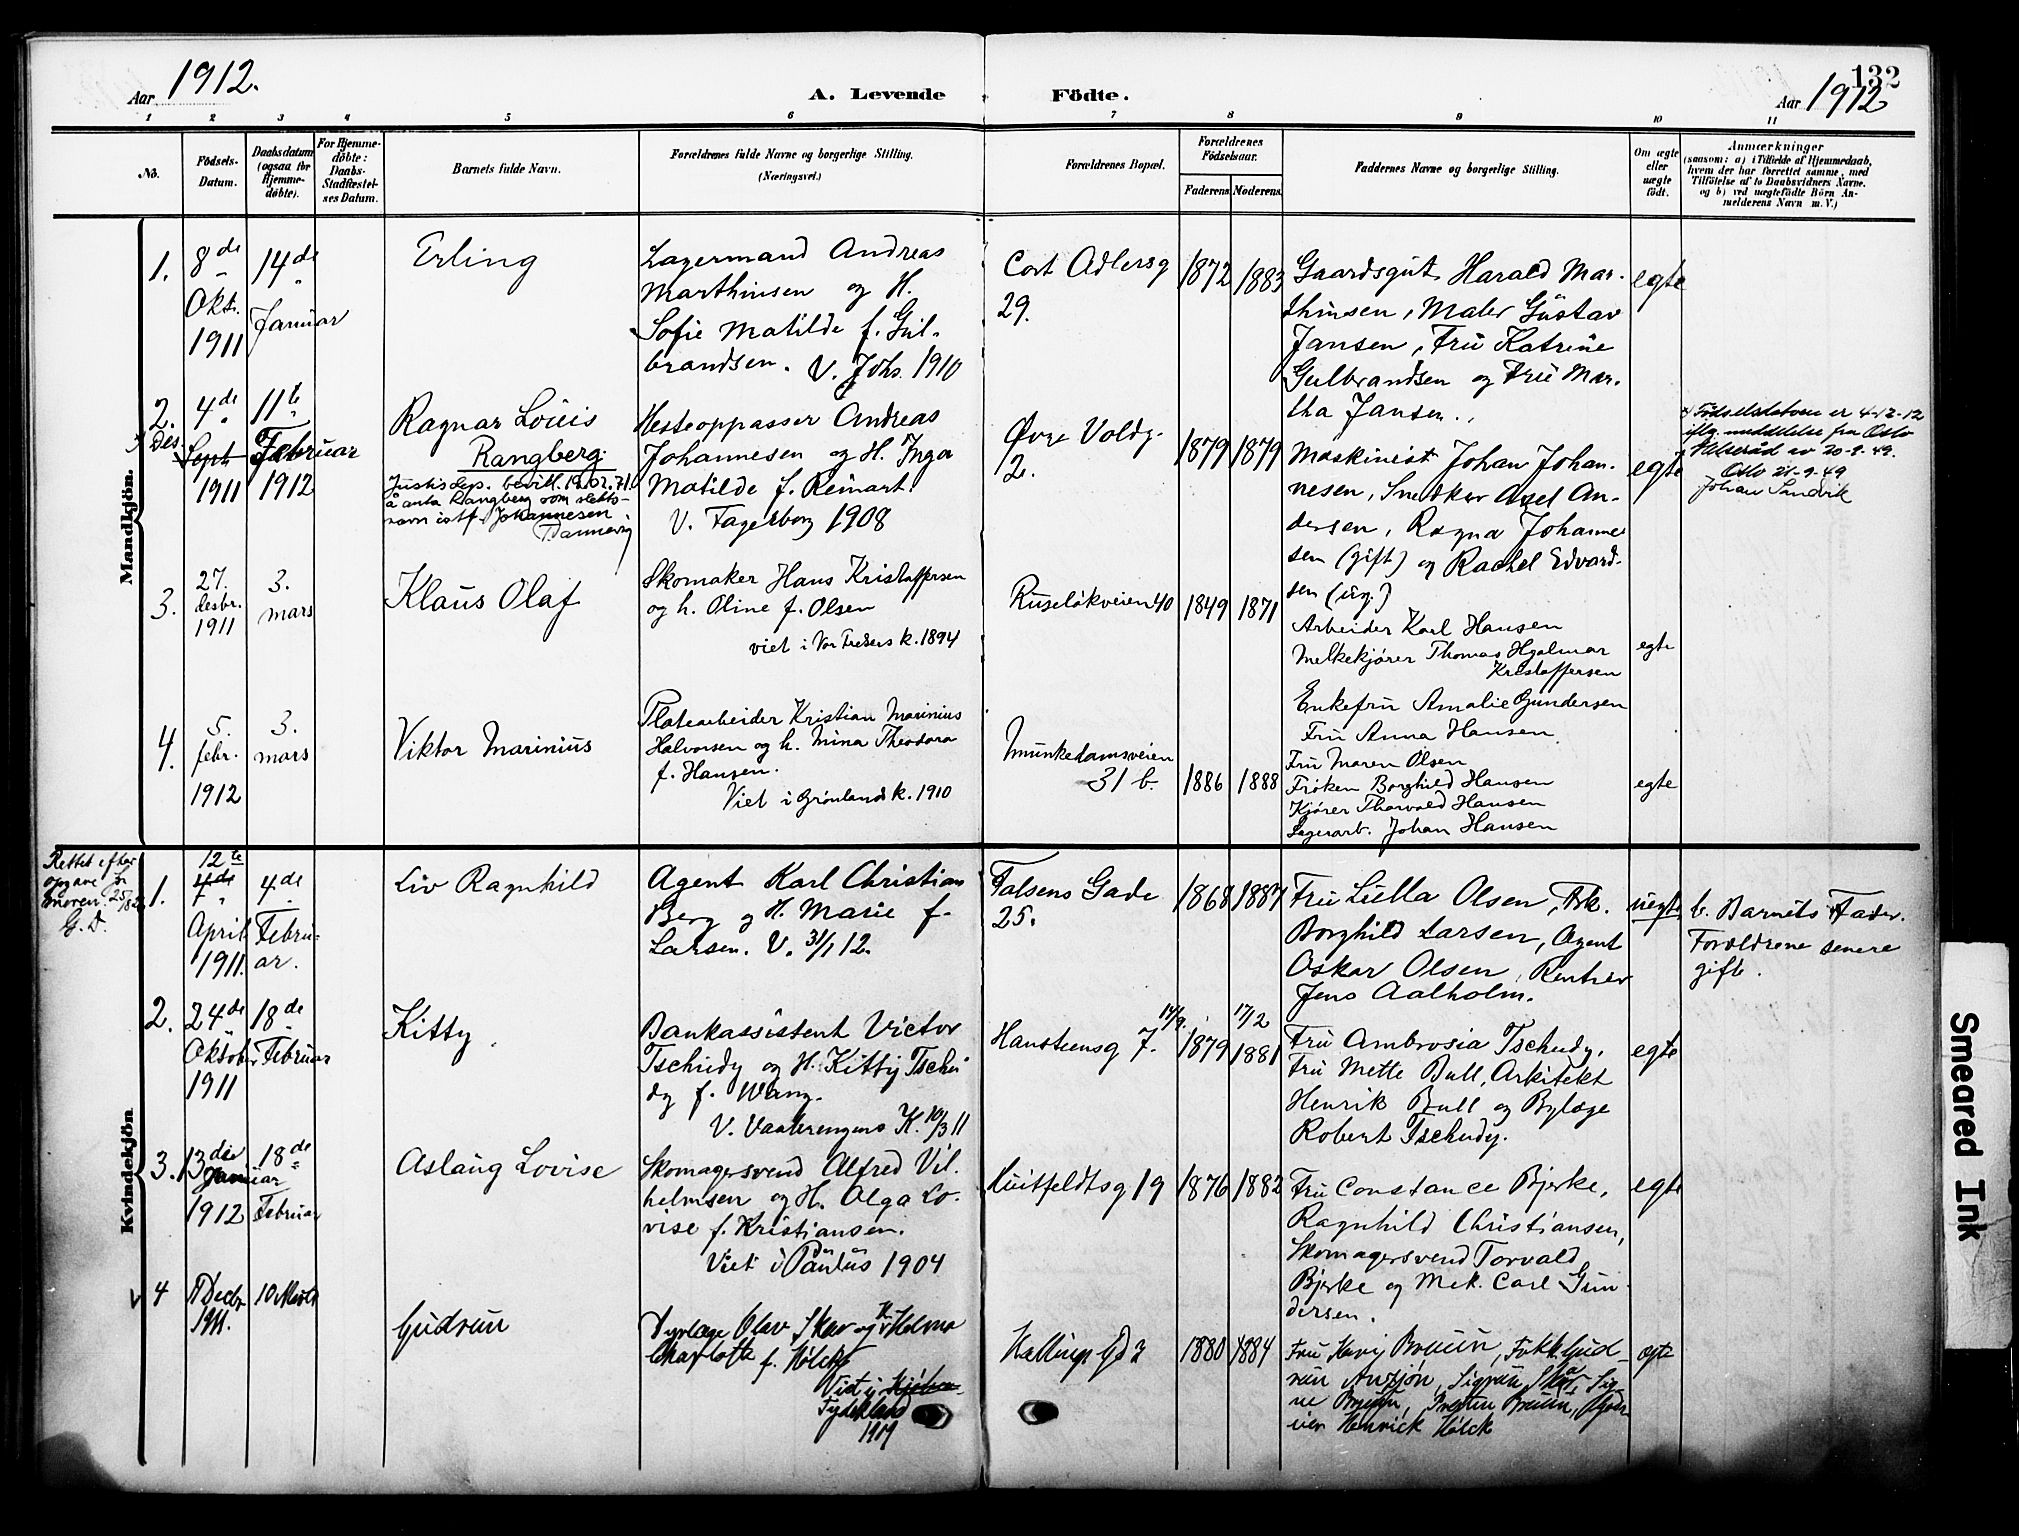 132
Aar 1912.
A. Levende Födte.
Aar 1912
1 2 3 4 5 6 7 8 9 10 11
No.
Födsels-
Datum.
Daabsdatum
(ogsaa for
Hjemme-
döbte).
For Hjemme-
döbte:
Daabs-
Stadfæstel-
ses Datum.
Barnets fulde Navn.
Forældrenes fulde Navne og borgerlige Stilling.
(Næringsvei.)
Forældrenes Bopæl.
Forældrenes
Födselsaar.
Faderens.
Moderens.
Faddernes Navne og borgerlige Stilling.
Om ægte
eller
uægte
født.
Anmærkninger
(saasom: a) i Tilfælde af Hjemmedaab,
hvem der har forrettet samme, med
Tilföielse af to Daabsvidners Navne,
og b) ved uægtefødte Börn An-
melderens Navn m. V.)
Mandkjön.
1.
8de
Okt.
1911
14de
Januar
Erling
Lagermand Andreas
Marthinsen og H.
Sofie Matilde f. Gul-
brandsen. V. Johs. 1910
Cort Adlersg
29.
1872
1883
Gaardsgut Harald Mar-
thinsen, Maler Gustav
Jansen, Fru Katrine
Gulbrandsen og Fru Mar-
tha Jansen.
egte
2.
4de
Des.
Sept
1911
11te
Februar
1912
Ragnar Louis
Rangberg.
Justisdep. bevill. 19.02.71
å anta Rangberg som slekts-
navn istf. Johannesen
Hesteoppasser Andreas
Johannesen og H. Inga
Matilde f. Reinart.
V. Fagerborg 1908
Øvre Voldg.
2.
1879
1879
Maskinist Johan Johan-
nesen, Snedker Axel An-
dersen, Ragna Johanne-
sen (gift) og Rachel Edvard-
sen (ug.)
egte
Fødselsdatoen er 4-12-12
iflg. meddelelse fra Oslo
Helseråd av 20-9-49.
Oslo 21-9-49
Johan Sandvik
3.
27.
desbr.
1911
3.
mars
Klaus Olaf
Skomaker Hans Kristoffersen
og h. Oline f. Olsen
viet i Vor Frelsers k. 1894
Ruseløkveien 40
1849
1871
Arbeider Karl Hansen
Melkekjører Thomas Hjalmar
Kristoffersen
Enkefru Amalie Gundersen
Fru Anna Hansen
egte
4.
5.
febr.
1912
3.
mars
Viktor Marinius
Platearbeider Kristian Marinius
Halvorsen og h. Mina Theodora
f. Hansen.
Viet i Grønlands k. 1910
Munkedamsveien
31 b.
1886
1888
Fru Maren Olsen
Frøken Borghild Hansen
Kjører Thorvald Hansen
Lagerarb. Johan Hansen
egte
Kvindekjön
Rettet efter
opgave fr.
moren. 25/8
G. D.
1.
12te
4de
April
1911.
4de
Febru-
ar.
Liv Ragnhild
Agent Karl Christian
Berg og H. Marie f.
Larsen. V. 31/1 12.
Falsens Gade
25.
1868
1887
Fru Lulla Olsen, Frk.
Borghild Larsen, Agent
Oskar Olsen, Rentier
Jens Aalholm.
uegte
b. Barnets Fader.
Forældrene senere
gift.
2.
24de
Oktober
1911
18de
Februar
Kitty
Bankassistent Victor
Tschudy og H. Kitty Tschu-
dy f. Wang.
V. Vaalerengens K. 10/3 11
Hansteensg 7.
14/9.
1879
17/2
1881
Fru Ambrosia Tschudy,
Fru Mette Bull, Arkitekt
Henrik Bull og Bylæge
Robert Tschudy.
egte
3.
13de
Januar
1912
18de
Februar
Aslaug Lovise
Skomagersvend Alfred Vil-
helmsen og H. Olga Lo-
vise f. Kristiansen.
Viet i Paulus 1904
Huitfeldtsg 19
1876
1882
Fru Constance Bjerke,
Ragnhild Christiansen,
Skomagersvend Torvald
Bjerke og Mek. Carl Gun-
dersen.
egte
4
Decbr
1911.
10 Marts
Gudrun
Dyrlæge Olav Skar og H.
Charlotte f. Hölck
Viet i
Tydskland
1909
1880
1884
Fru
Sigrun
Henrick Hölck
egte
Smeared Ink